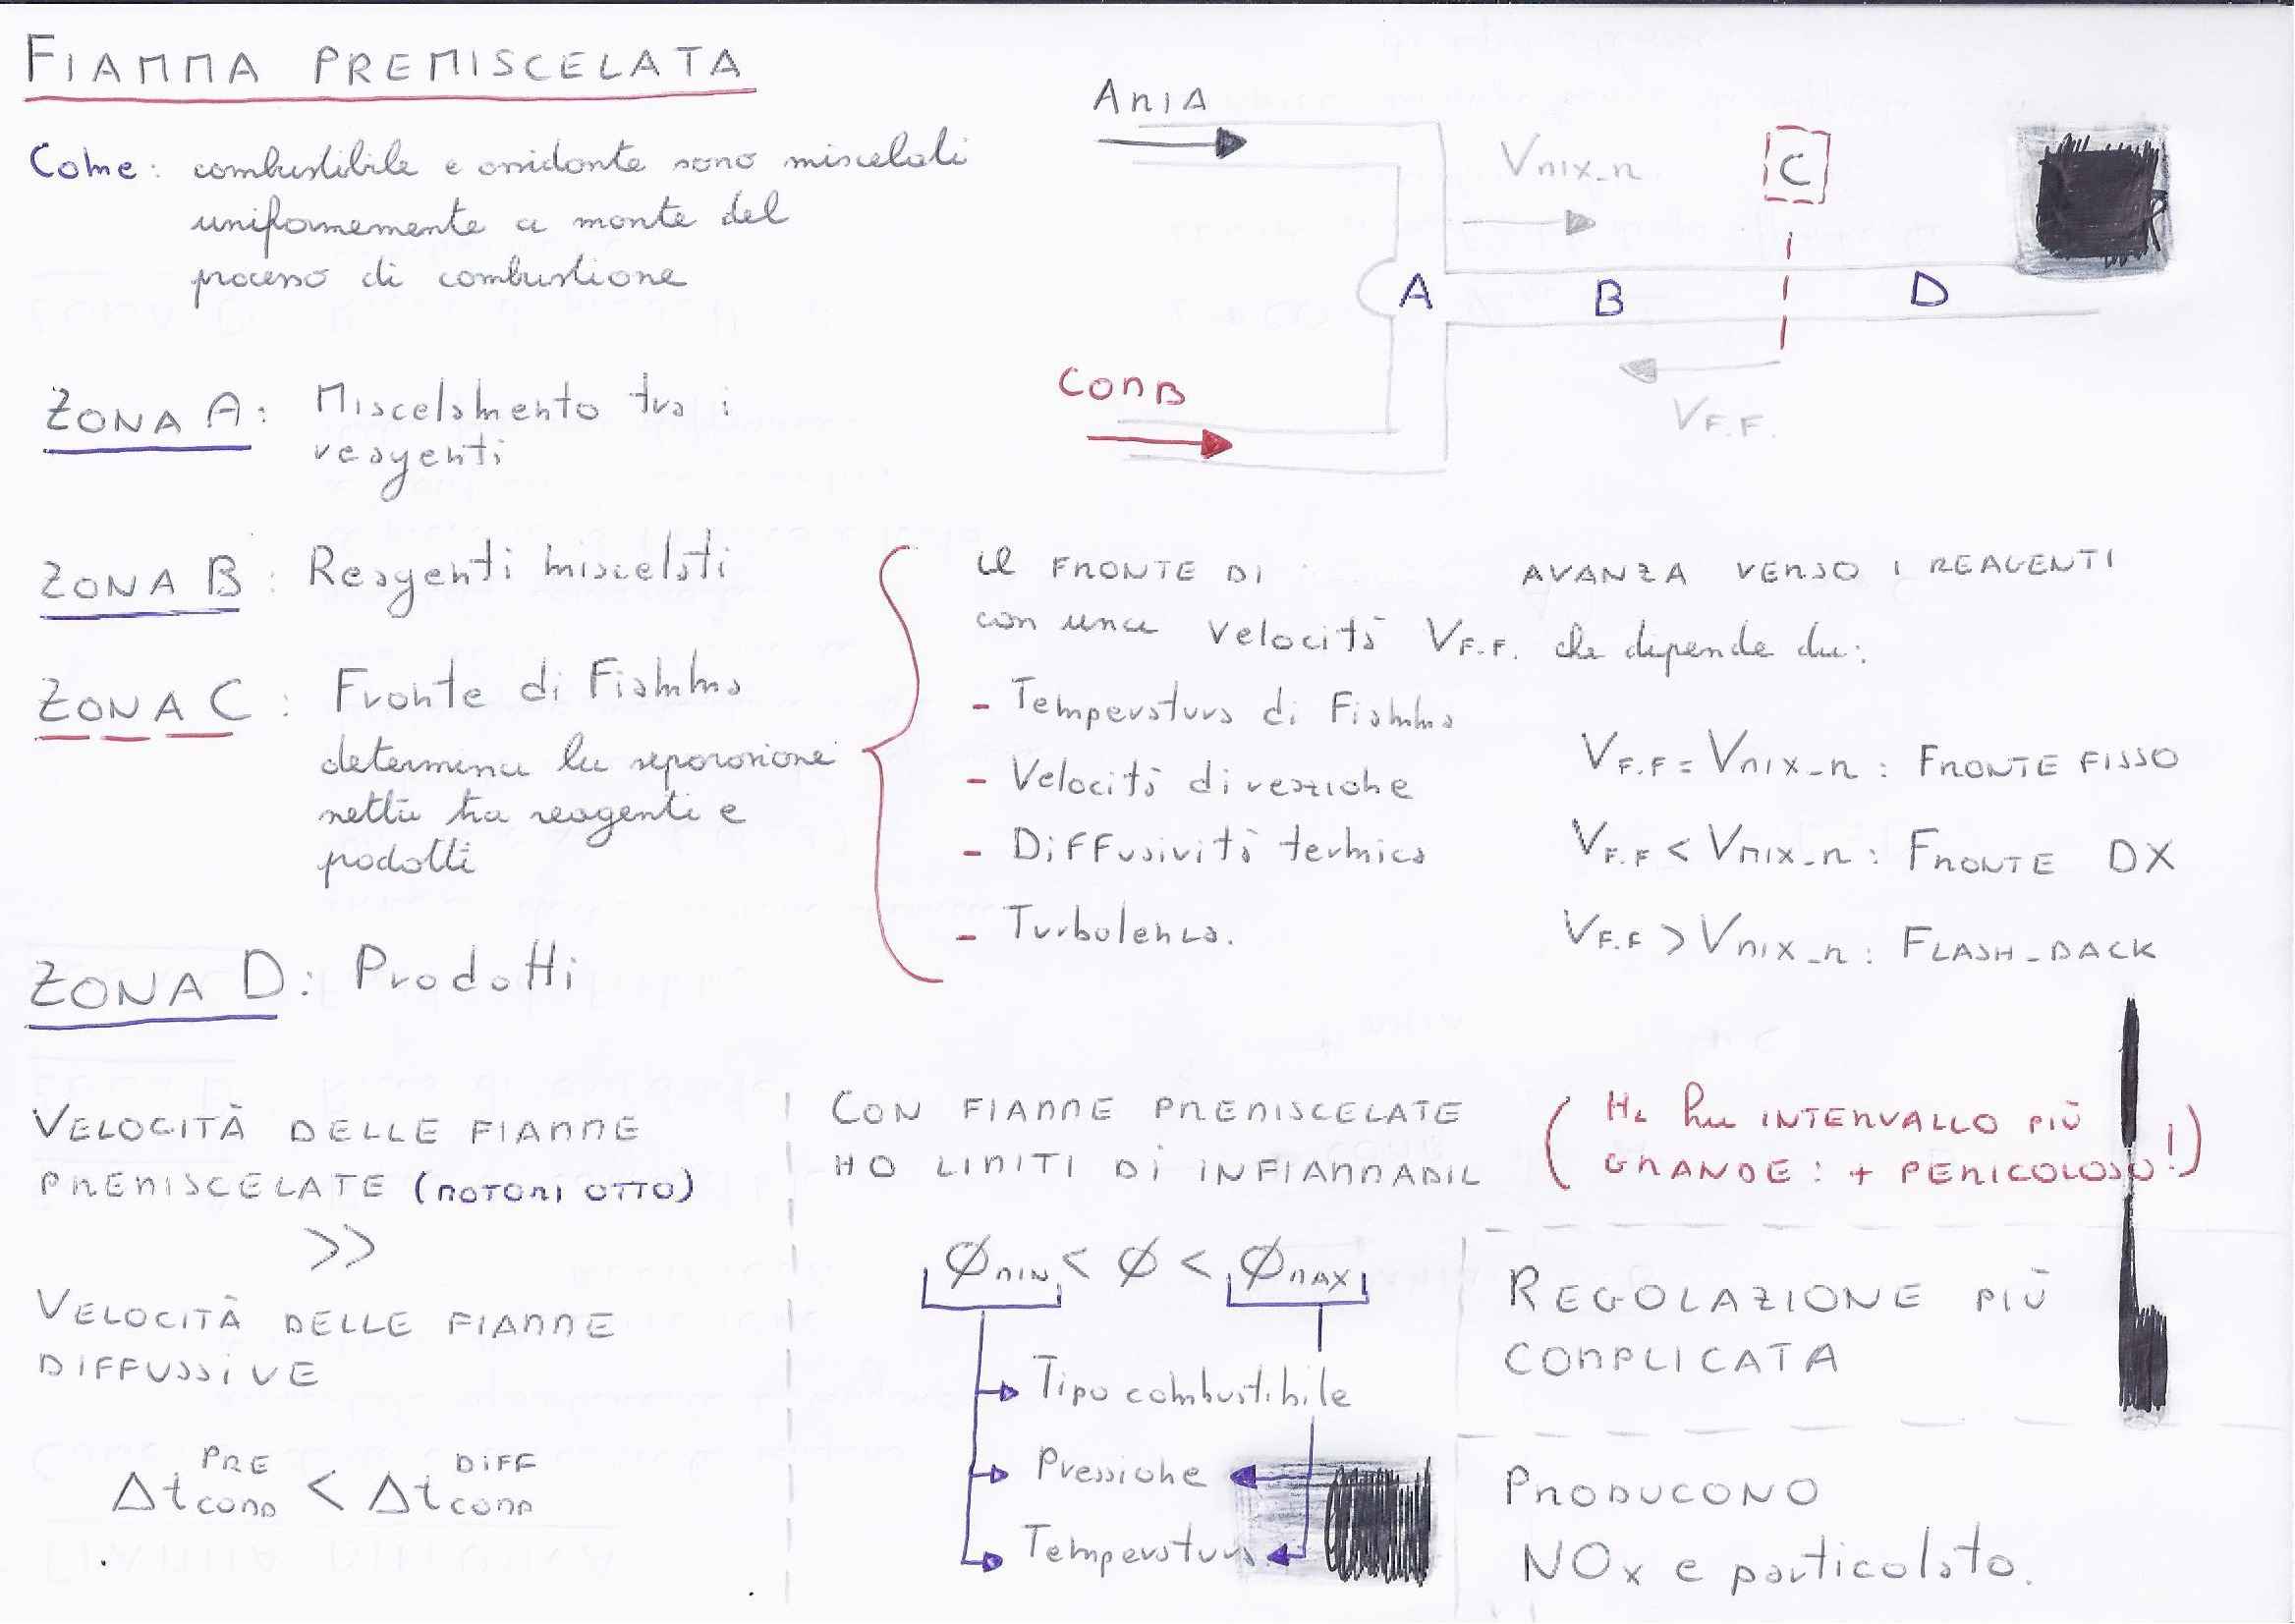 FIAMMA PREMISCELATA
Come: combustibile e ossidante sono miscelati
uniformemente a monte del
processo di combustione
ARIA
COMB
VMIX_R
C
A
B
D
VF.F.
ZONA A: Miscelamento tra i
reagenti
ZONA B: Reagenti miscelati
ZONA C: Fronte di Fiamma
determina la separazione
netta tra reagenti e
prodotti
ZONA D: Prodotti
il FRONTE DI AVANZA VERSO I REAGENTI
con una velocità VF.F. che dipende da:
- Temperatura di Fiamma
- Velocità di reazione
- Diffusività termica
- Turbolenza.
VF.F = VMIX_R: FRONTE FISSO
VF.F < VMIX_R: FRONTE DX
VF.F > VMIX_R: FLASH_BACK
VELOCITÀ DELLE FIAMME
PREMISCELATE (MOTORI OTTO)
>>
VELOCITÀ DELLE FIAMME
DIFFUSSIVE
Δt PRE COMB < Δt DIFF COMB
CON FIAMME PREMISCELATE
HO LIMITI DI INFIAMMABIL
(H2 ha INTERVALLO PIÙ
GRANDE: + PERICOLOSO!)
ØMIN < Ø < ØMAX
Tipo combustibile
Pressione
Temperatura
REGOLAZIONE PIÙ
COMPLICATA
PRODUCONO
NOx e particolato.